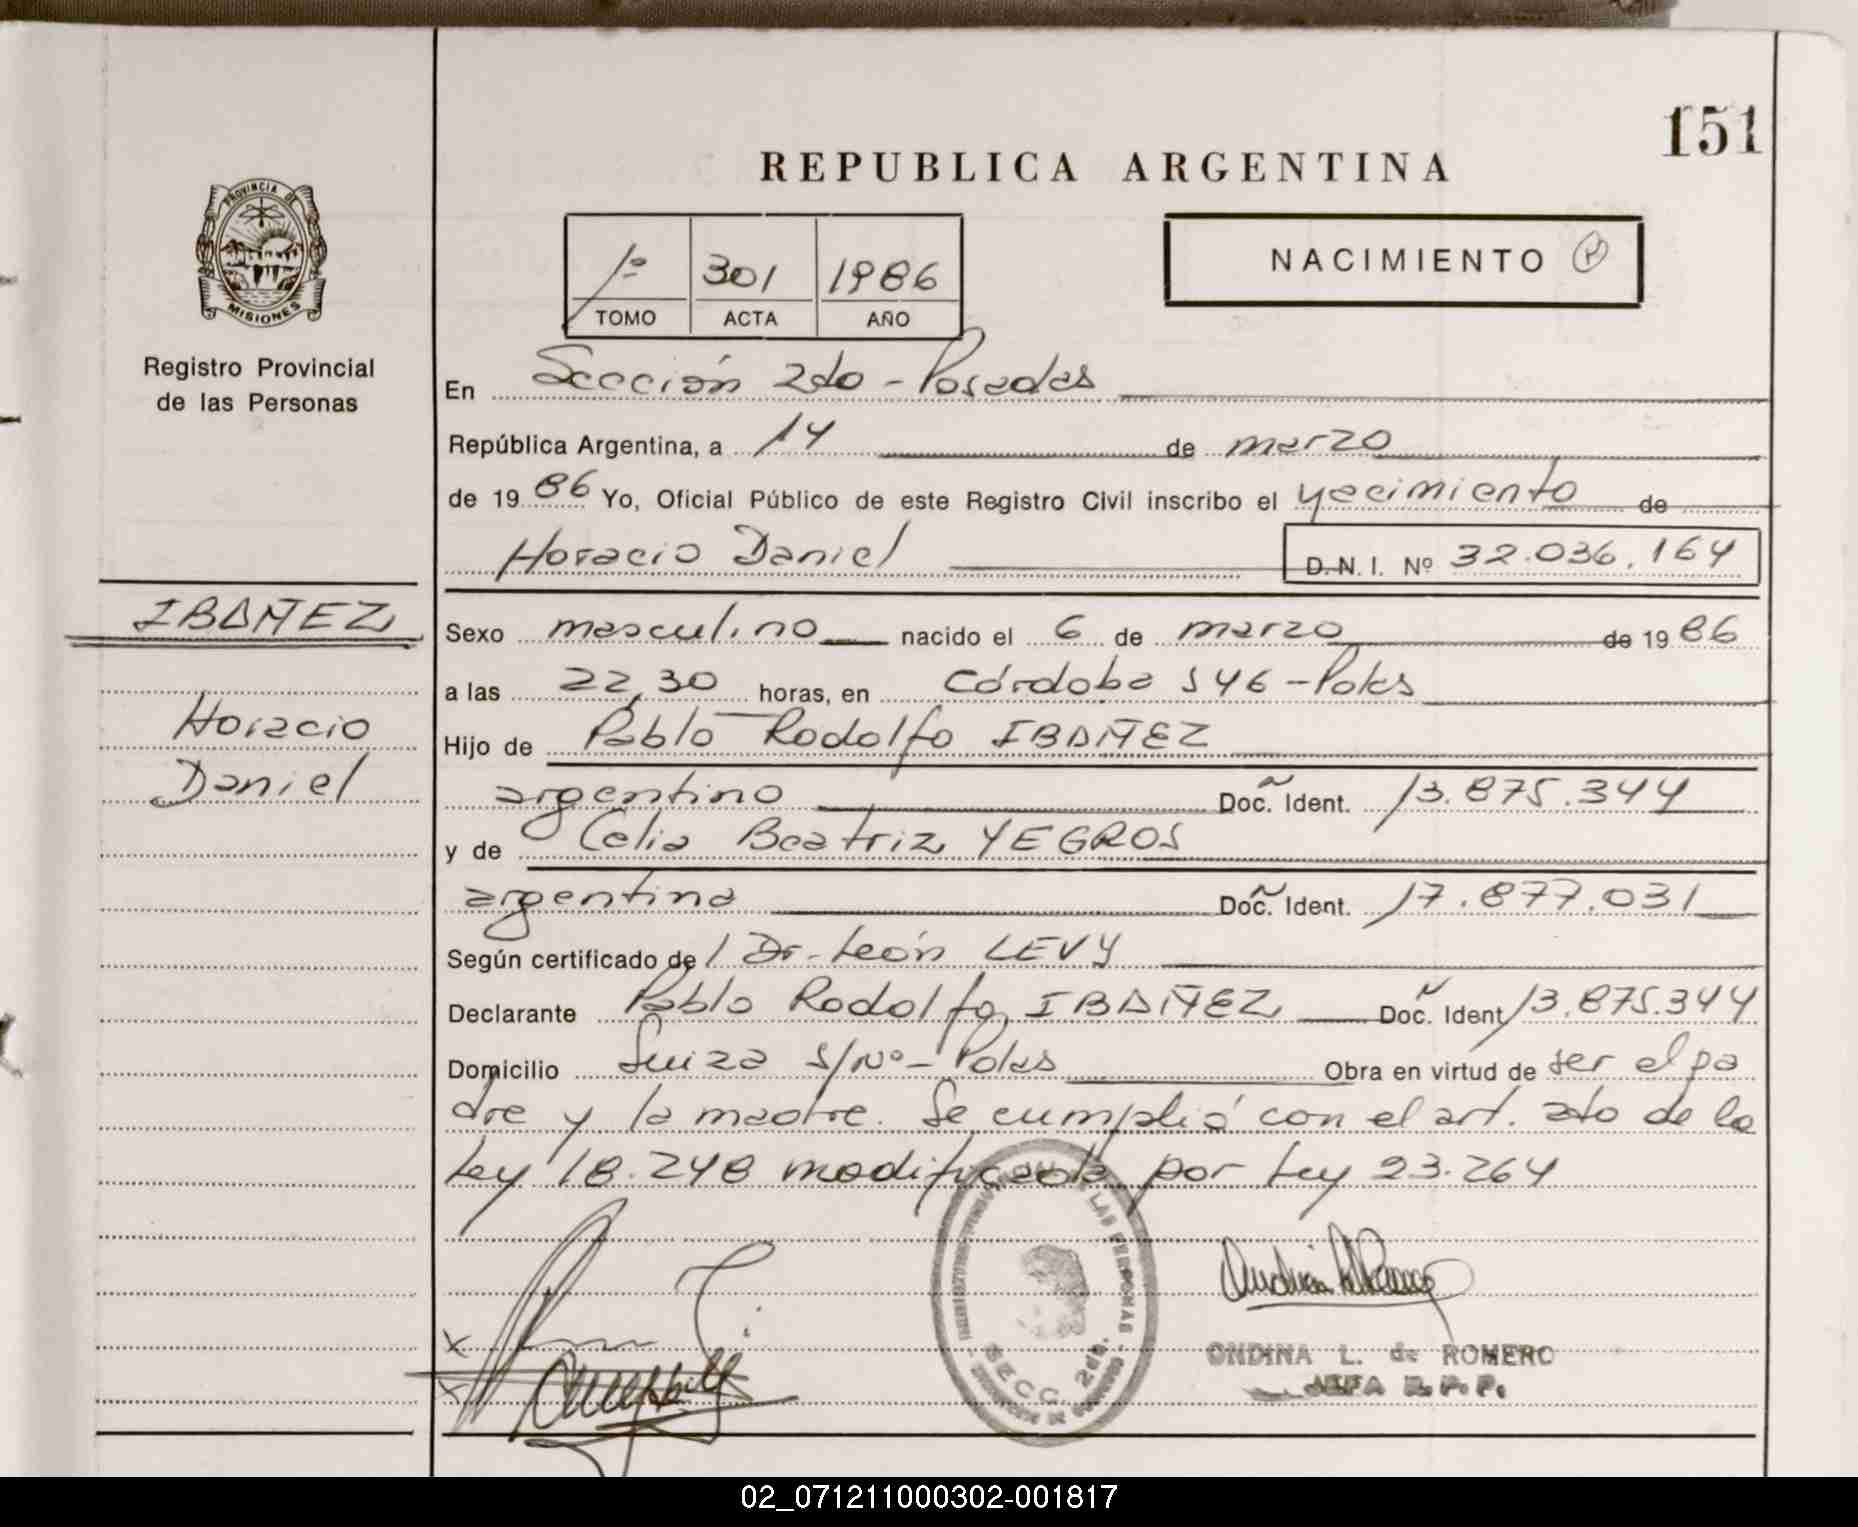 151
REPUBLICA ARGENTINA
PROVINCIA DE
MISIONES
1º 301 1986
TOMO ACTA AÑO
NACIMIENTO
Registro Provincial
de las Personas
En Sección 2do - Posadas
República Argentina, a 14 de marzo
de 1986 Yo, Oficial Público de este Registro Civil inscribo el yacimiento de
Horacio Daniel D.N.I. Nº 32.036.164
IBAÑEZ
Horacio
Daniel
Sexo masculino nacido el 6 de marzo de 1986
a las 22,30 horas, en Córdoba 546 - Pdas
Hijo de Pablo Rodolfo IBAÑEZ
argentino Doc. Ident. 13.875.344
y de Celia Beatriz YEGROS
argentina Doc. Ident. 17.877.031
Según certificado de / Dr. León LEVY
Declarante Pablo Rodolfo IBAÑEZ Doc. Ident 13.875.344
Domicilio Suiza S/Nº - Pdas Obra en virtud de ser el pa
dre y la madre. Se cumplió con el art. 2do de la
Ley 18.248 modificada por Ley 23.264
LAS PERSONAS
SECC. 2da.
ONDINA L. de ROMERO
JEFA R. P. P.
02_071211000302-001817